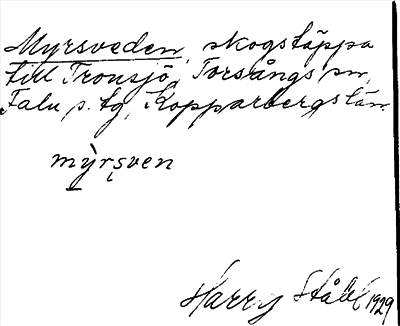 Myrsveden, skogstäppa
till Tronsjö, Torsångs sn,
Falu s. tg, Kopparbergs län.
mỳrsven
Harry Ståhl 1929